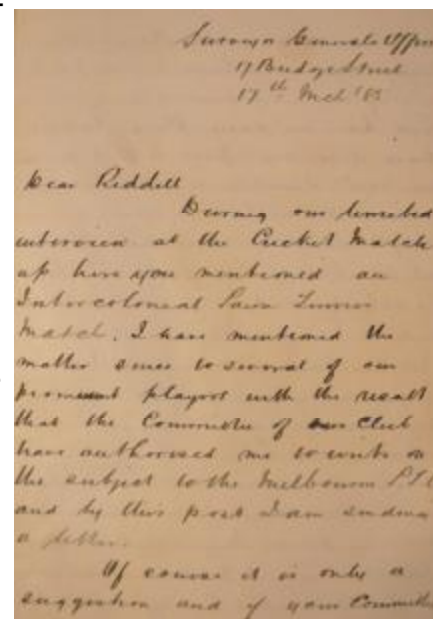 Surveyor Generals Office
17 Bridge Street
17th Mch '85
Dear Riddell
During our limited
interview at the Cricket Match
up here you mentioned an
Intercolonial Lawn Tennis
Match. I have mentioned the
matter since to several of our
prominent players with the result
that the Committee of our Club
have authorised me to write on
the subject to the Melbourne
and by this post I am sending
a letter.
Of course it is only a
suggestion and if your Committee